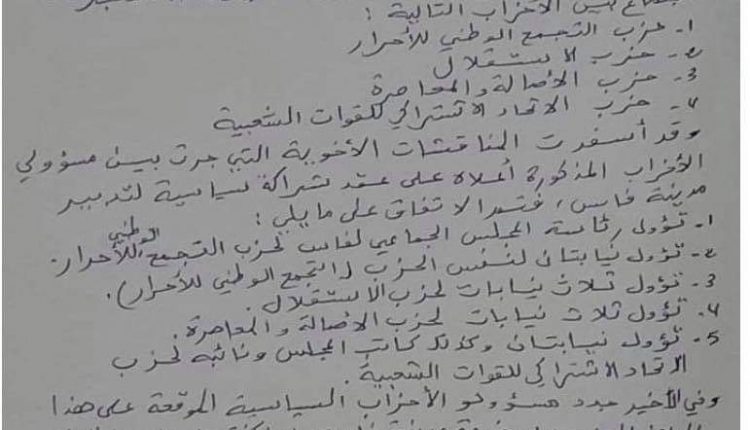 بين الأحزاب التالية :
1- حزب التجمع الوطني للأحرار
2- حزب الاستقلال
3- حزب الأصالة والمعاصرة
4- حزب الاتحاد الاشتراكي للقوات الشعبية
وقد أسفرت المناقشات الأخوية التي جرت بين مسؤولي
الأحزاب المذكورة أعلاه على عقد شراكة سياسية لتدبير
مدينة فاس، فتم الاتفاق على ما يلي :
1- تؤول رئاسة المجلس الجماعي لفاس لحزب التجمع الوطني للأحرار.
2- تؤول نيابتان لنفس الحزب (التجمع الوطني للأحرار).
3- تؤول ثلاث نيابات لحزب الاستقلال.
4- تؤول ثلاث نيابات لحزب الأصالة والمعاصرة.
5- تؤول نيابتان وكذلك كاتب المجلس ونائبه لحزب
الاتحاد الاشتراكي للقوات الشعبية.
وفي الأخير جدد مسؤولو الأحزاب السياسية الموقعة على هذا